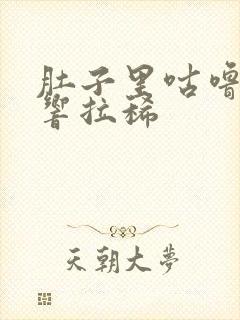 肚子里咕噜
响拉稀
天朝大梦